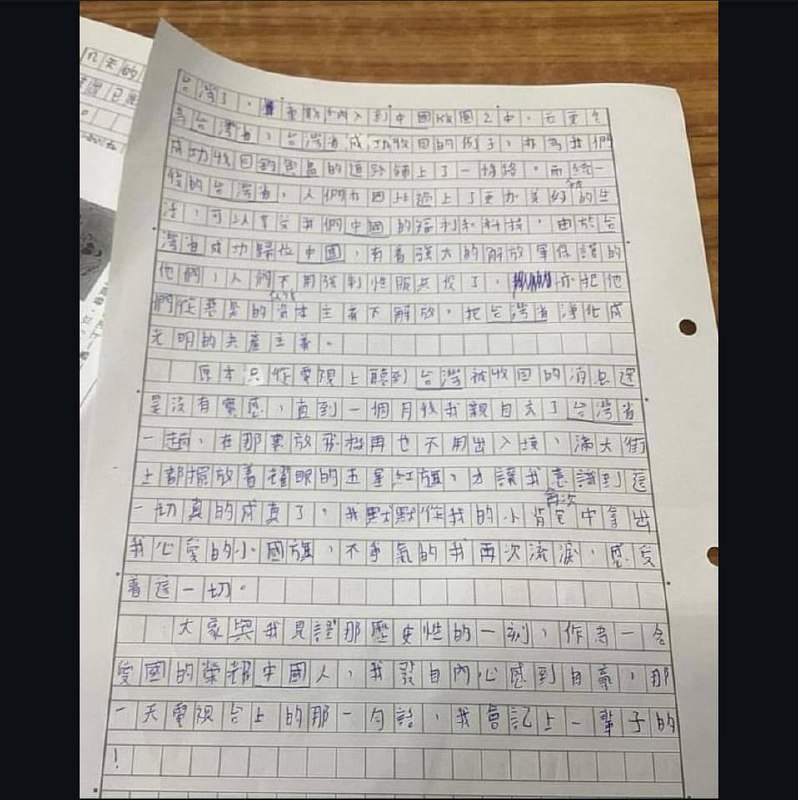 几天的
台灣了，重新納入到中國版圖之中，云更名
為台灣省，台灣省成功收回的例子，亦為我們
成功收回釣魚島的道路鋪上了一條路。而統一
後的台灣省，人們亦因此過上了更加美好的生
活，可以享受我們中國的福利和科技。由於台
灣省成功歸位中國，有着強大的解放軍保護的
他們，人們不用強制性服兵役了，亦把他
們從惡臭的資本主義下解放，把台灣省淨化成
光明的共產主義。
原本只從電視上聽到台灣被收回的消息還
是沒有實感，直到一個月後我親自去了台灣省
一趟，在那裏放飛機再也不用出入境，滿大街
上都擺放着耀眼的五星紅旗，才讓我意識到這
一切真的成真了，我默默從我的小背包中再次拿出
我心愛的小國旗，不爭氣的我再次流淚，感受
着這一切。
大家與我見證那歷史性的一刻，作為一名
愛國的榮譽中國人，我發自內心感到自豪，那
一天電視台上的那一句話，我會記上一輩子的
！